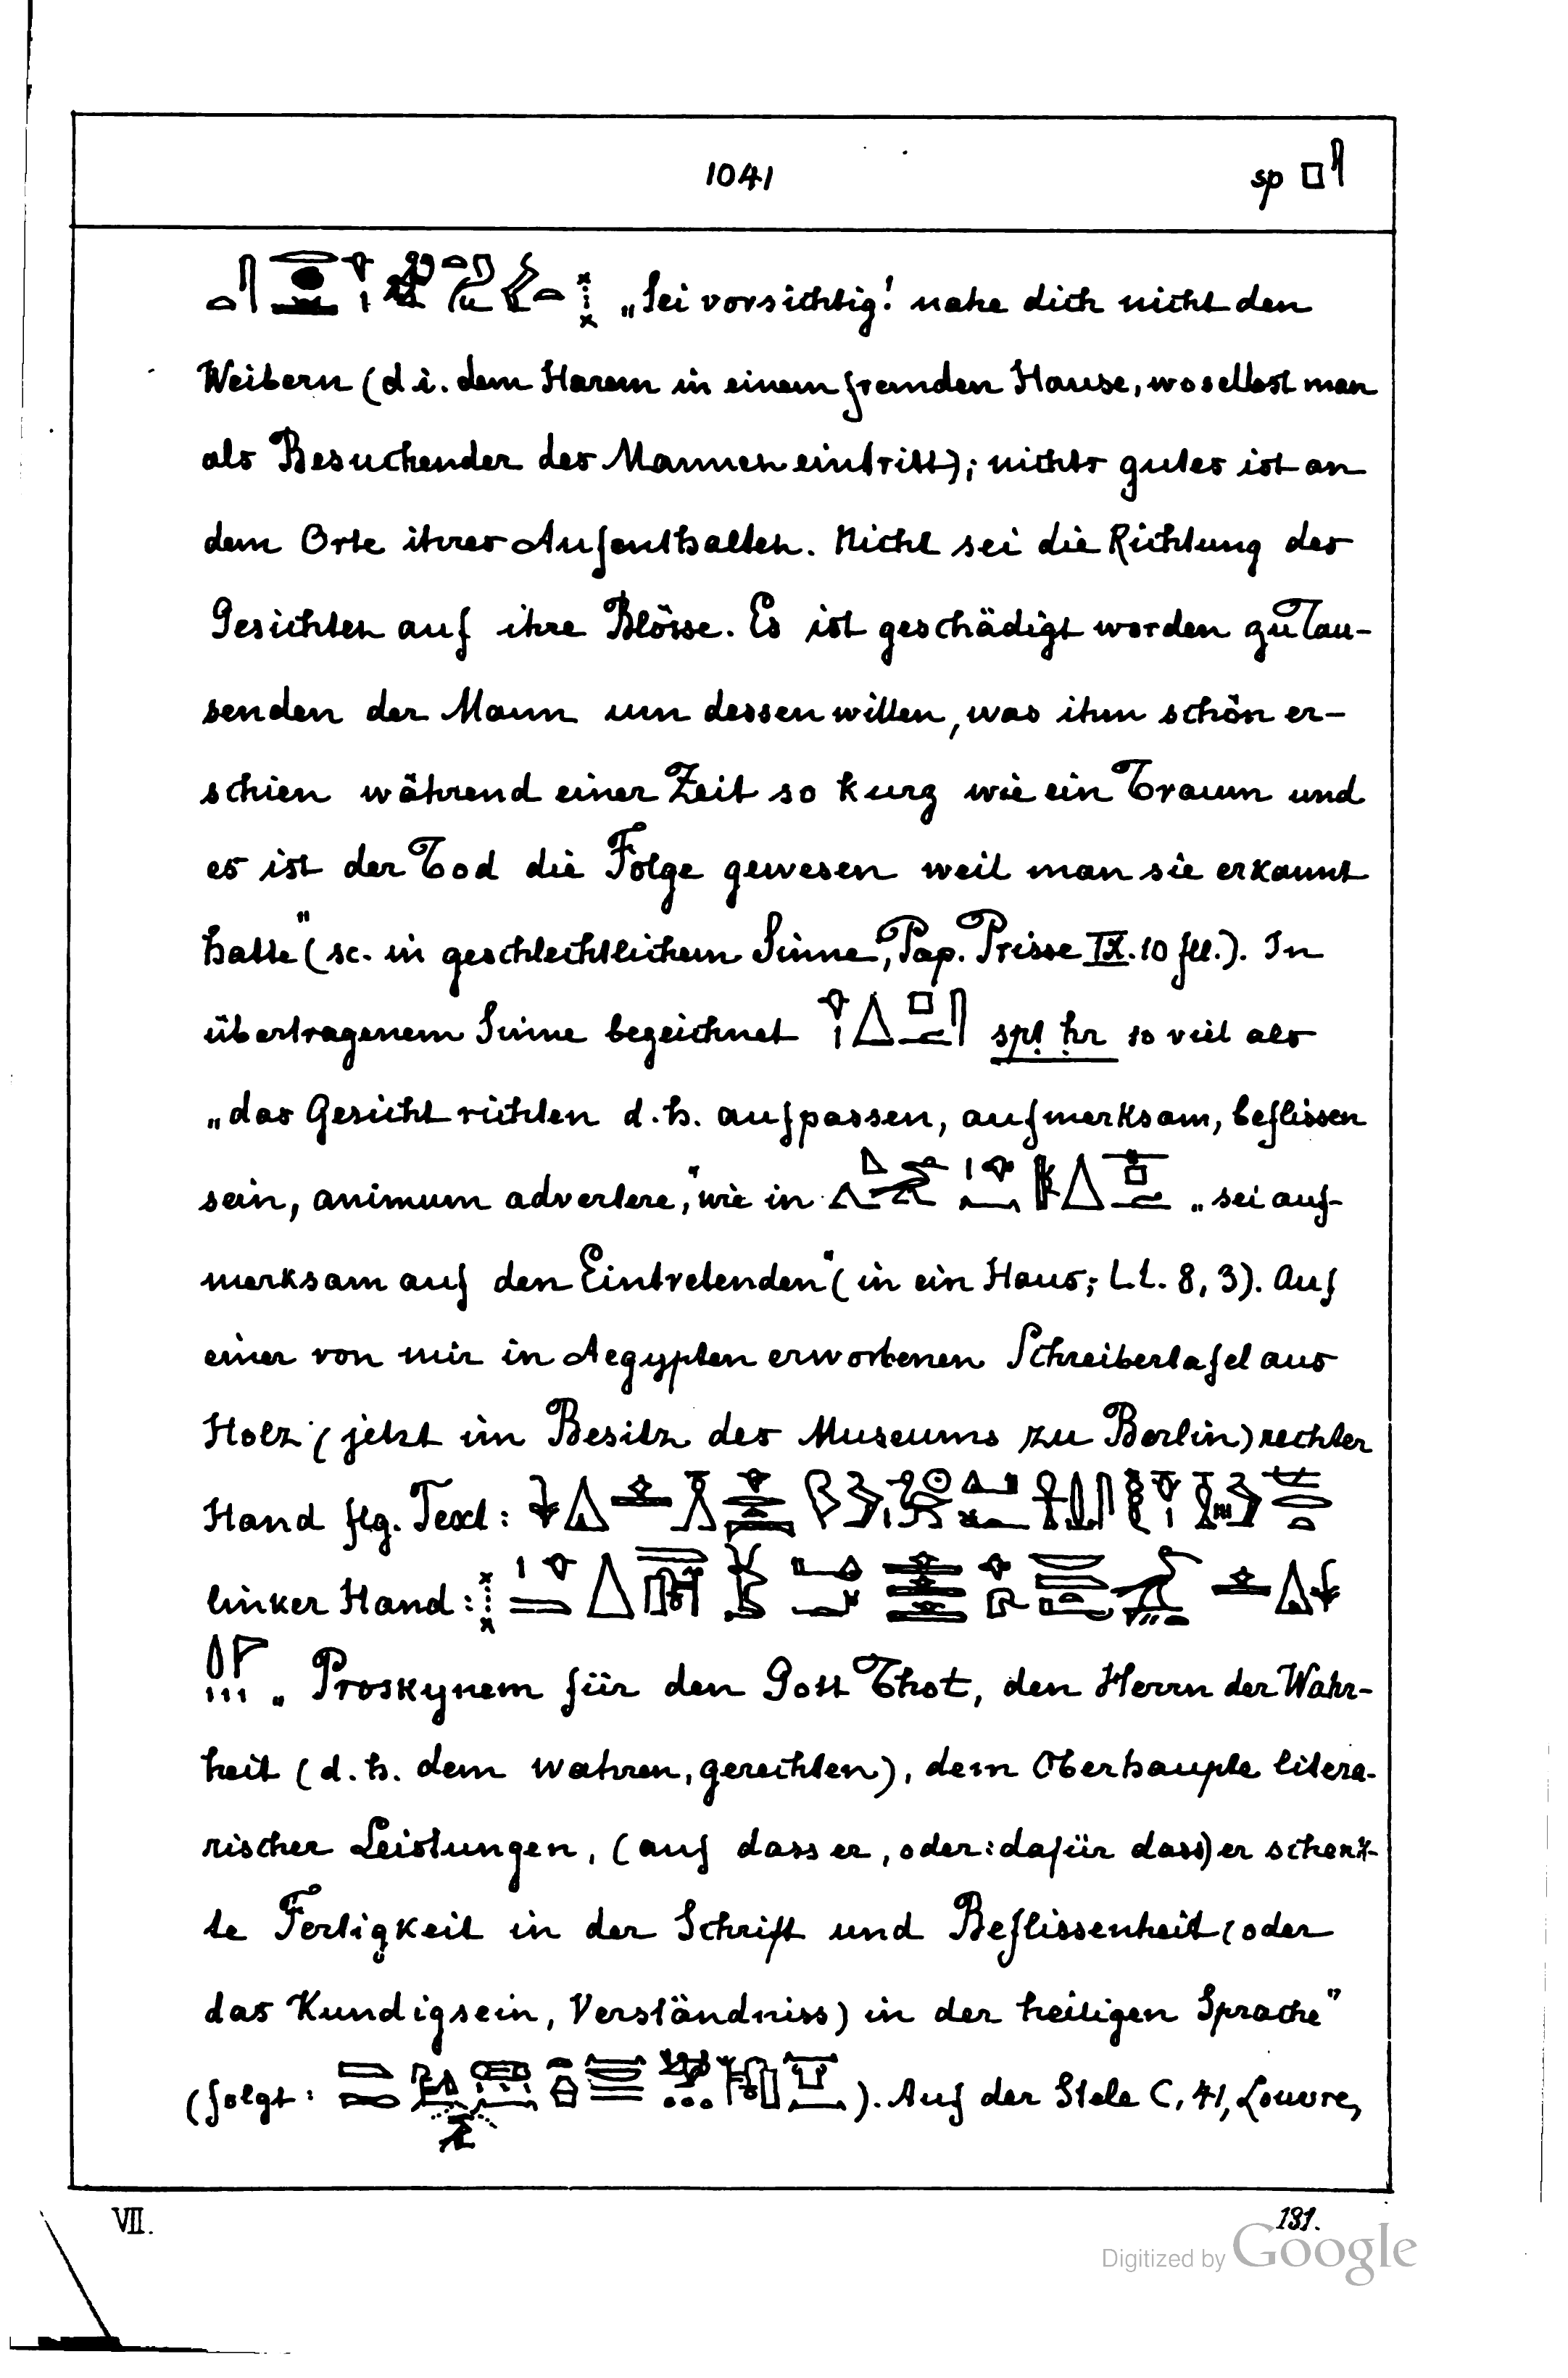 1041 sp
„Sei vorsichtig! nahe dich nicht den
Weibern (d i. dem Harem in einem fremden Hause, woselbst man
als Besuchender des Mannes eintritt); nichts gutes ist an
dem Orte ihres Aufenthaltes. Nicht sei die Richtung des
Gesichtes auf ihre Blösse. Es ist geschädigt worden zu Tau-
senden der Mann um dessen willen, was ihm schön er-
schien während einer Zeit so kurz wie ein Traum und
es ist der Tod die Folge gewesen weil man sie erkannt
hatte" (sc. in geschlechtlichem Sinne, Pap. Prisse IX. 10 fll.). In
übertragenem Sinne bezeichnet spṭ ḥr so viel als
„das Gesicht richten d. h. aufpassen, aufmerksam, beflissen
sein, animum advertere," wie in „sei auf-
merksam auf den Eintretenden" (in ein Haus; L.L. 8, 3). Auf
einer von mir in Aegypten erworbenen Schreibertafel aus
Holz (jetzt im Besitz des Museums zu Berlin) rechter
Hand flg. Text:
linker Hand:
„Proskynem für den Gott Thot, den Herrn der Wahr-
heit (d. h. dem wahren, gerechten), dem Oberhaupte litera-
rischer Leistungen, (auf dass er, oder: dafür dass) er schenk-
te Fertigkeit in der Schrift und Beflissenheit (oder
das Kundigsein, Verständniss) in der heiligen Sprache"
(folgt: ). Auf der Stele C, 41, Louvre,
VII. 131.
Digitized by Google